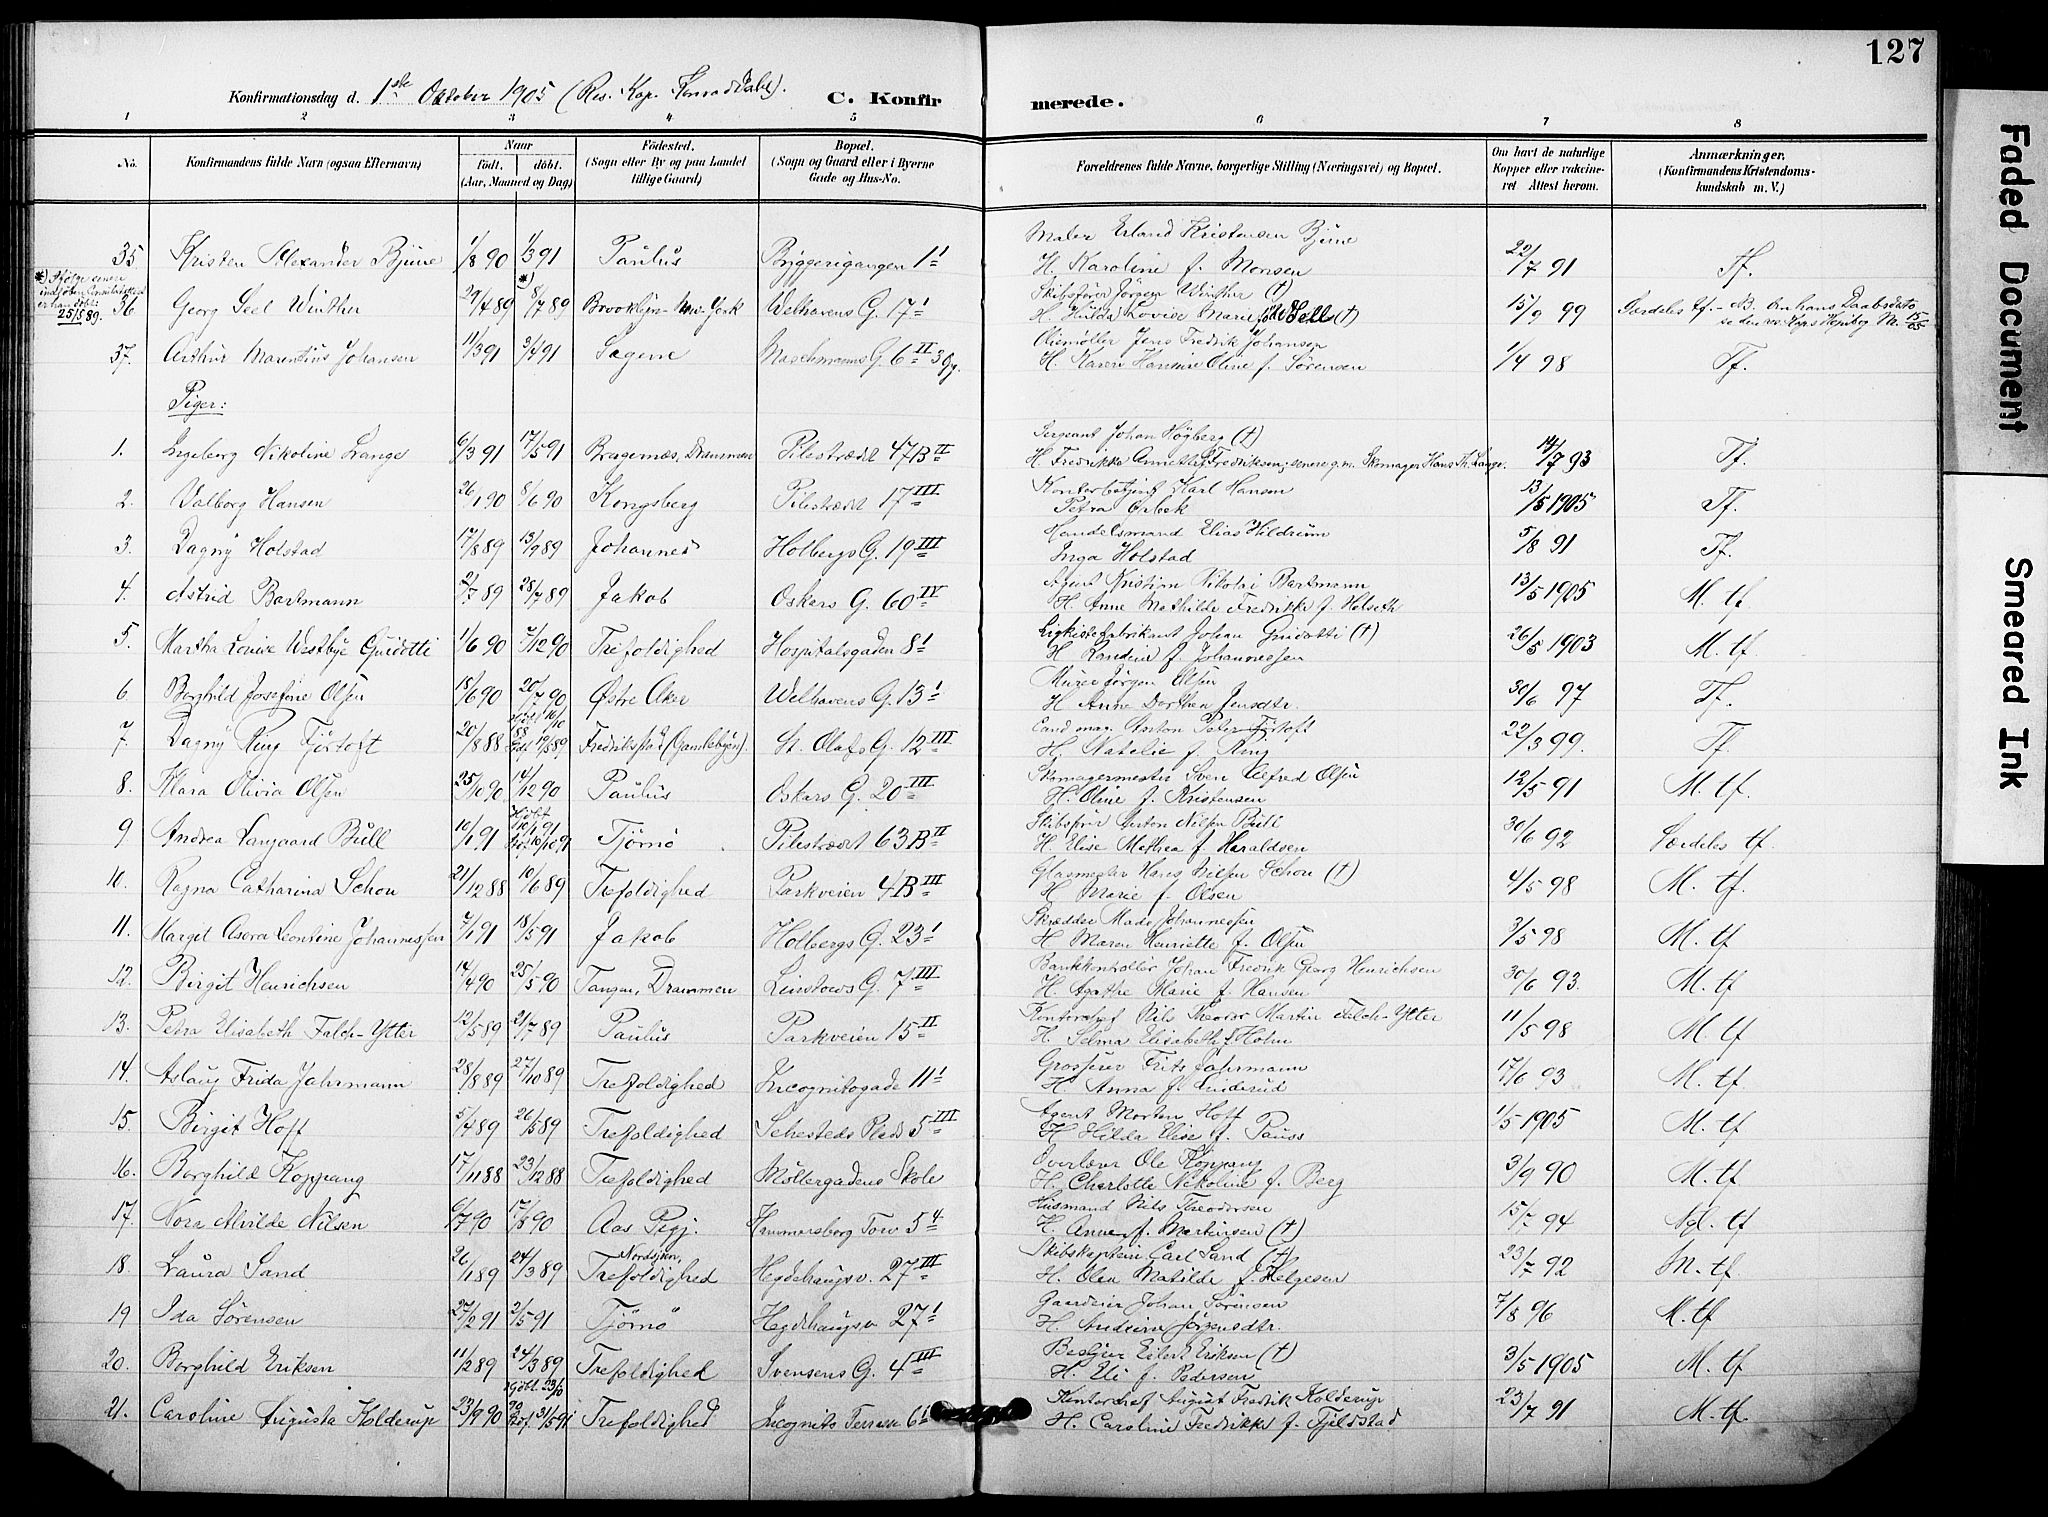 127
Konfirmationsdag d. 1ste Oktober 1905 (Res. Kap. Konrad Dahl). C. Konfirmerede.
1 2 3 4 5 6 7 8
No. Konfirmandens fulde Navn (ogsaa Efternavn) Naar født. døbt. (Aar, Maaned og Dag) Fødested. (Sogn eller By og paa Landet tillige Gaard) Bopæl. (Sogn og Gaard eller i Byerne Gade og Hus-No. Forældrenes fulde Navne, borgerlige Stilling (Næringsvei) og Bopæl. Om havt de naturlige Kopper eller vakcineret Attest herom. Anmærkninger. (Konfirmandens Kristendomskundskab m. V.)
35 Kristen Alexander Bjune 1/8 90 1/3 91 Paulus Byggerigangen 1 I Maler Erland Kristensen Bjune H. Karoline f. Monsen 22/7 91 Tf.
*) Ifølge senere er han døbt 25/5 89.
36 Georg Seel Winther 29/4 89 *) 8/7 89 Brooklyn New-York Welhavens G. 17 I Skibsfører Jørgen Winther (†) H. Hilda Lovise Marie Sell (†) 15/9 99 Særdeles tf.
37. Arthur Marentius Johansen 11/3 91 3/4 91 Sagene Maschmanns G. 6 II 3 Opg. Oliemøller Jens Fredrik Johansen H. Karen Hansine Oline f. Sørensen 1/4 98 Tf.
Piger:
1. Ingeborg Nikoline Lange 6/3 91 17/5 91 Bragernes, Drammen Pilestrædet 47 B II Sergeant Johan Høgberg (†) H. Fredrikke Annette f. Fredriksen; senere g. m. Skomager Hans Th. Lange. 14/7 93 Tf.
2. Valborg Hansen 26/1 90 8/6 90 Kongsberg Pilestrædet 17 III Kontorbetjent Karl Hansen Petra Orbek 13/5 1905 Tf.
3. Dagny Holstad 17/8 89 13/9 89 Johannes Holbergs G. 19 III Handelsmand Elias Hildrum Inga Holstad 5/8 91 Tf.
4. Astrid Bartmann 2/7 89 28/7 89 Jakob Oskars G. 60 IV Agent Kristian Nikolai Bartmann H. Anne Mathilde Fredrikke f. Holseth 13/5 1905 M. tf
5. Martha Louise Westbye Guidotti 1/6 90 7/12 90 Trefoldighed Hospitalsgaden 8 I Ligkistefabrikant Johan Guidotti (†) H. Randine f. Johannessen 26/5 1903 M. tf.
6 Borghild Josefine Olsen 18/6 90 20/7 90 Østre Aker Welhavens G. 13 I Murer Jørgen Olsen H Anne Dorthea Jensdtr. 30/6 97 Tf.
7. Dagny Ring Fjørtoft 20/8 88 Hjdbt 16/10 88 Fredriksstad (Gamlebyen). St. Olafs G. 12 III Cand. mag. Anton Peter Fjørtoft H. Natalie f. Ring 22/3 99. Tf
8. Klara Olivia Olsen 25/10 90 14/12 90 Paulus Oskars G. 20 III Skomagermester Sven Alfred Olsen H. Oline f. Kristensen 12/5 91 M. tf.
9 Andrea Langaard Bull 10/1 91 Hjdbt 10/1 91 Tjømø Pilestrædet 63 B II Skibsfører Anton Nilsen Bull H Elise Mathea f. Haraldsen 30/6 92 Særdeles tf.
10. Ragna Catharina Schou 21/12 88 10/6 89 Trefoldighed Parkveien 4 B III Glasmester Hans Nilsen Schou (†) H Marie f. Olsen 4/5 98 M. tf.
11. Margit Asora Leontine Johannessen 7/1 91 18/5 91 Jakob Holbergs G. 23 I Skrædder Mads Johannessen H. Maren Henriette f. Olsen 3/5 98 M. tf
12. Birgit Henrichsen 14/4 90 25/5 90 Tangen, Drammen Linstows G. 7 III Bankkontrollør Johan Fredrik Georg Henrichsen H Agathe Marie f. Hansen 30/6 93. M. tf
13. Petra Elisabeth Falch-Ytter 12/5 89 21/7 89 Paulus Parkveien 15 II Kontorchef Nils Theodor Martin Falch-Ytter H. Selma Elisabeth f. Holm 11/5 98 M. tf
14. Aslaug Frida Jahrmann 28/8 89 27/10 89 Trefoldighed Incognitogade 11 I Grosserer Frits Jahrmann H. Anna f. Linderud 17/6 93 M. tf
15. Birgit Hoff 5/4 89 26/5 89 Trefoldighed Sehesteds Plads 5 III Agent Morten Hoff H Hilda Elise f. Pauss 1/5 1905 M. tf
16. Borghild Koppang 17/11 88 23/12 88 Trefoldighed Møllergadens Skole Overlærer Ole Koppang H. Charlotte Nikoline f. Berg 3/9 90 M. tf
17. Nora Alvilde Nilsen 6/7 90 17/8 90 Aas Pgj. Hammersborg Torv 5 4 Husmand Nils Theodorsen H. Anne f. Martinsen (†) 15/7 94 Ngl. tf
18. Laura Sand 26/1 89 24/3 89 Nordsjøen, Trefoldighed Hegdehaugsv. 27 III Skibskaptein Carl Sand (†) H. Olea Matilde f. Helgesen 23/7 92 M. tf.
19 Ida Sørensen 27/2 91 2/5 91 Tjømø Hegdehaugsv. 27 I Gaardeier Johan Sørensen H. Andrine Jørgensdtr. 7/8 96 M. tf
20. Borghild Eriksen 11/2 89 24/3 89 Trefoldighed Svensens G. 4 III Eilert Eriksen (†) H. Eli f. Pedersen 3/5 1905 M. tf
21. Caroline Augusta Kolderup 23/9 90 Hjdbt. 23/10 90 31/5 91 Trefoldighed Incognito Terrasse 6 I Kontorchef August Fredrik Kolderup H. Caroline Fredrikke f. Fjeldstad 23/7 91 M. tf.
Faded Document
Smeared Ink